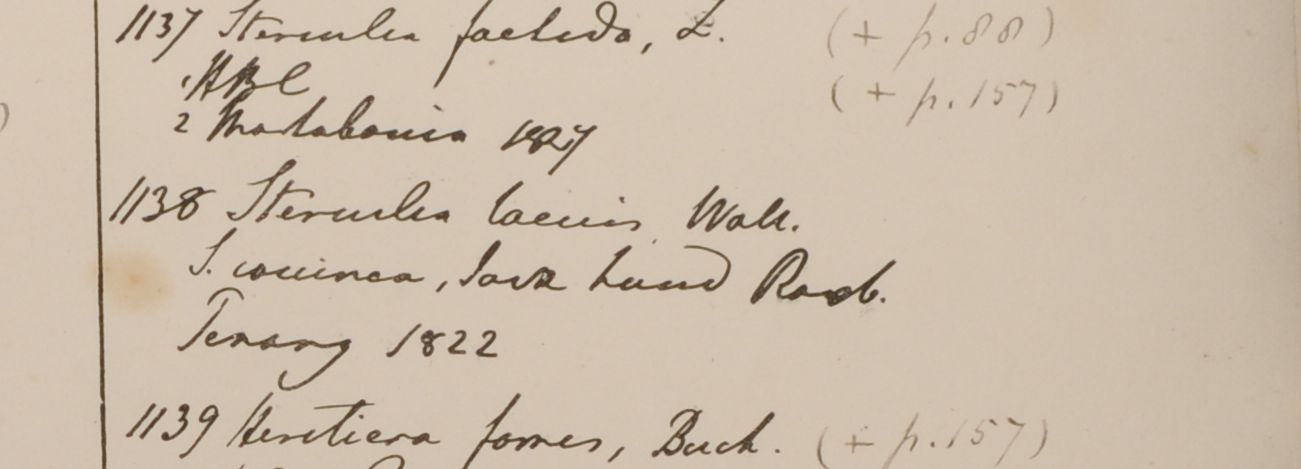 1137 Sterculia foetida, L. (+ p. 88)
HBC (+ p. 157)
2 Martabania 1827
1138 Sterculia laevis Wall.
S. coccinea, Jack haud Roxb.
Penang 1822
1139 Heretiera fomes, Buch. (+ p. 157)